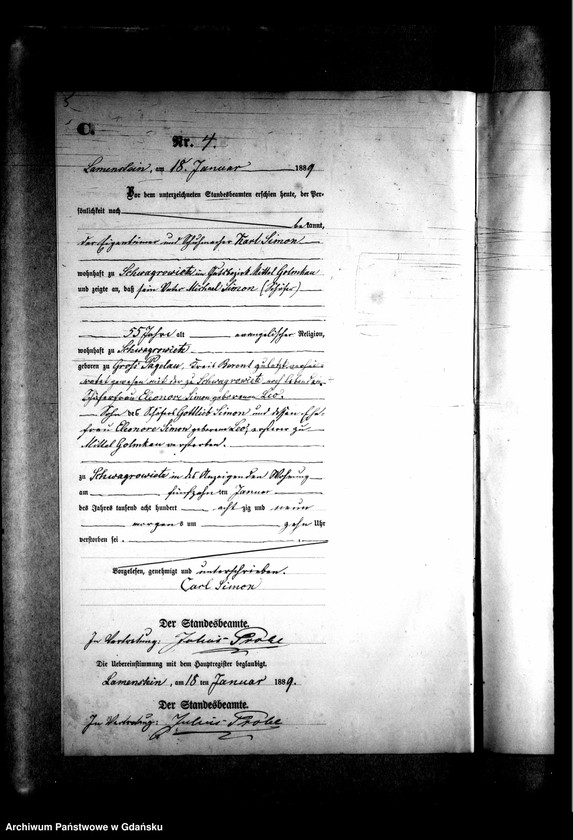 5
C.
Nr. 4.
Lamenstein, am 18. Januar 1889
Vor dem unterzeichneten Standesbeamten erschien heute, der Per-
sönlichkeit nach
bekannt,
der Eigentümer und Schuhmacher Karl Simon
wohnhaft zu Schwagrowietz im Gutsbezirk Mittel Golmkau
und zeigte an, daß sein Vater Michael Simon (Schäfer)
55 Jahre alt evangelischer Religion,
wohnhaft zu Schwagrowietz
geboren zu Groß Paglau, Kreis Berent zuletzt verhei-
ratet gewesen mit der zu Schwagrowietz noch lebenden
Schäferfrau Eleonore Simon geborenen Leo.
Sohn des Schäfers Gottlieb Simon und dessen Ehe-
frau Eleonore Simon geborenen Leo, ersterer zu
Mittel Golmkau verstorben.
zu Schwagrowietz in des Anzeigenden Wohnung
am fünfzehnten Januar
des Jahres tausend acht hundert achtzig und neun
morgens um zehn Uhr
verstorben sei.
Vorgelesen, genehmigt und unterschrieben.
Carl Simon
Der Standesbeamte.
In Vertretung: Julius Probe
Die Uebereinstimmung mit dem Hauptregister beglaubigt.
Lamenstein, am 18ten Januar 1889.
Der Standesbeamte.
In Vertretung: Julius Probe
Archiwum Państwowe w Gdańsku